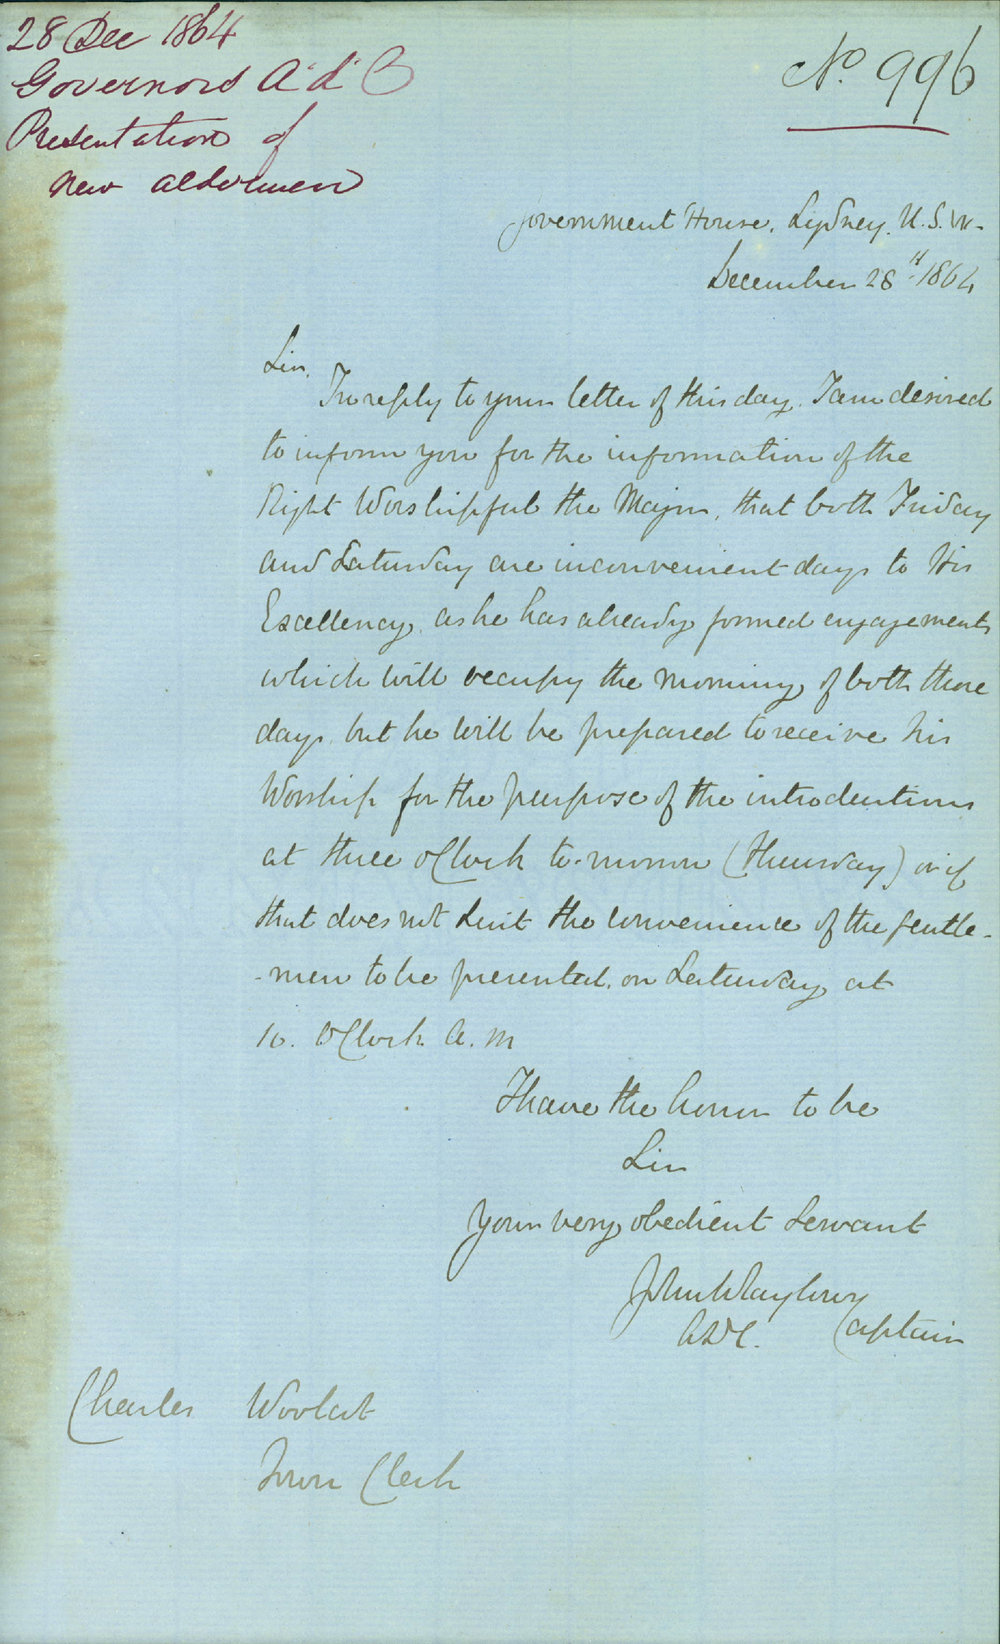 28 Dec 1864
Governors A.d.C
Presentation of
new aldermen
No. 996
Government House, Sydney. N.S.W.
December 28th 1864
Sir,
In reply to your letter of this day. I am desired
to inform you for the information of the
Right Worshipful the Mayor, that both Friday
and Saturday are inconvenient days to His
Excellency, as he has already formed engagements
which will occupy the morning of both those
days, but he will be prepared to receive his
Worship for the purpose of the introductions
at three oClock to-morrow (Thursday) or if
that does not suit the convenience of the gentle-
-men to be presented, on Saturday at
10. OClock A.M
I have the honor to be
Sir
Your very obedient Servant
John
ADC. Captain
Charles Woolcott
Town Clerk